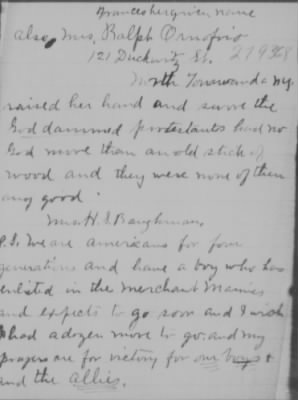 Frances her given name
also, Mrs, Ralph Onofrio
121 Duckwitz St. 219368
North Tonawanda N.Y.
raised her hand and swore the
God dammed protestants had no
God more than an old stick of
wood and they were none of them
any good
Mrs. H. S. Baughman,
P.S. We are americans for four
generations and have a boy who has
enlisted in the Merchant Marines
and expects to go soon and I wish
I had a dozen more to go, and my
prayers are for victory for our boys +
and the allies.